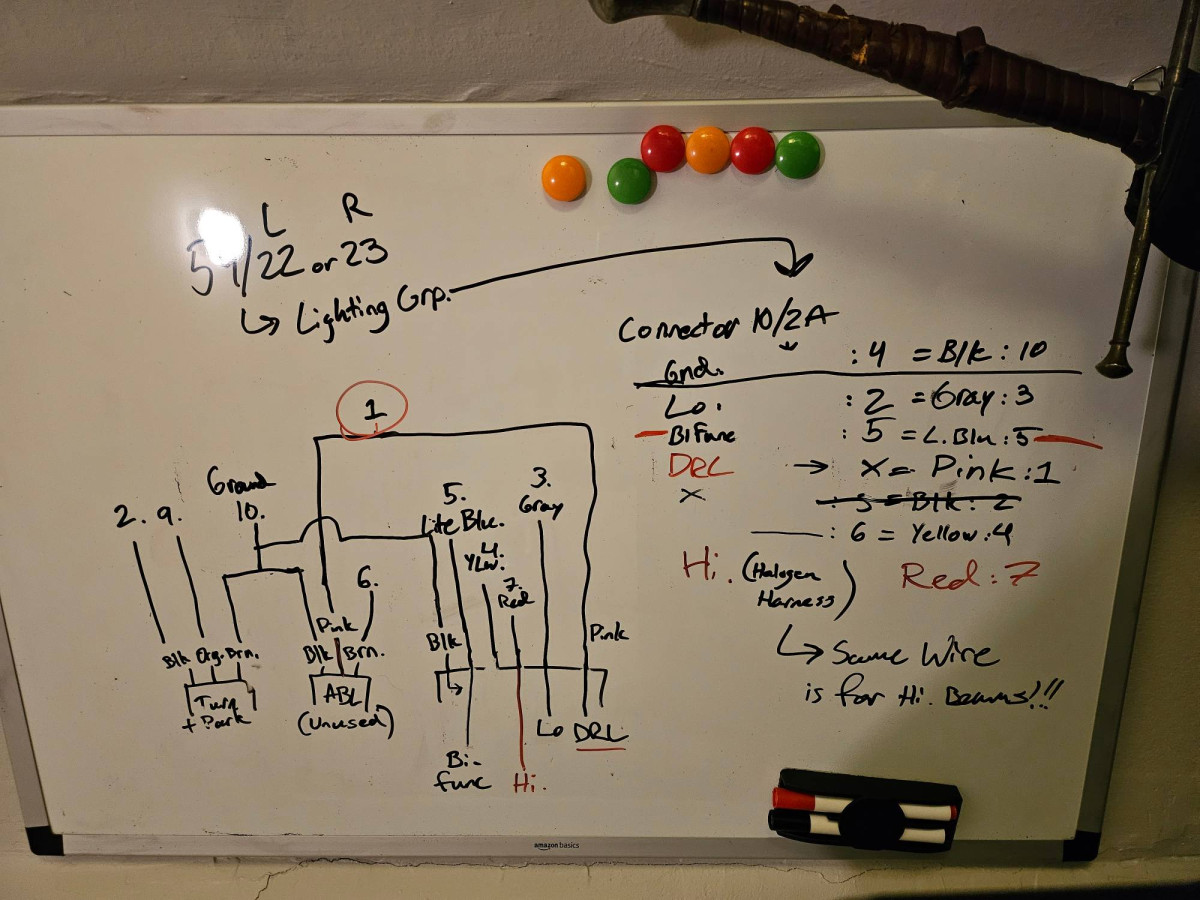 L R
54/22 or 23
↳ Lighting Grp.
Connector 10/2A
Gnd. : 4 = Blk : 10
Lo. : 2 = Gray : 3
BiFunc : 5 = L. Blu : 5
DRL → X = Pink : 1
X : 3 = Blk : 2
: 6 = Yellow : 4
Hi. (Halogen Harness) Red : 7
↳ Same Wire
is for Hi. Beams!!!
1
Ground
10.
2. 9.
5.
Lite Blue.
3.
Gray
4.
YLw.
7.
Red
6.
Pink
Blk Org. Brn.
Blk Brn.
Blk
Pink
Turn
+ Park
ABL
(Unused)
Lo DRL
Bi-
func
Hi.
amazon basics